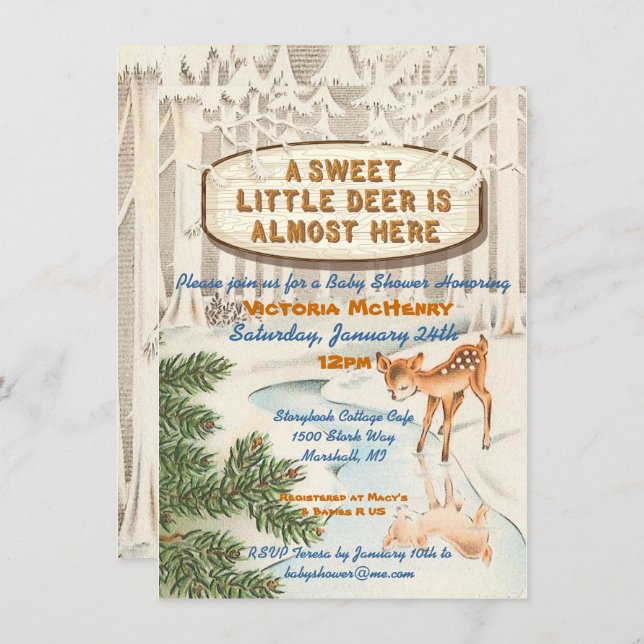 A SWEET
LITTLE DEER IS
ALMOST HERE
Please join us for a Baby Shower Honoring
Victoria McHenry
Saturday, January 24th
12pm
Storybook Cottage Cafe
1500 Stork Way
Marshall, MI
Registered at Macy's
& Babies R US
RSVP Teresa by January 10th to
babyshower@me.com